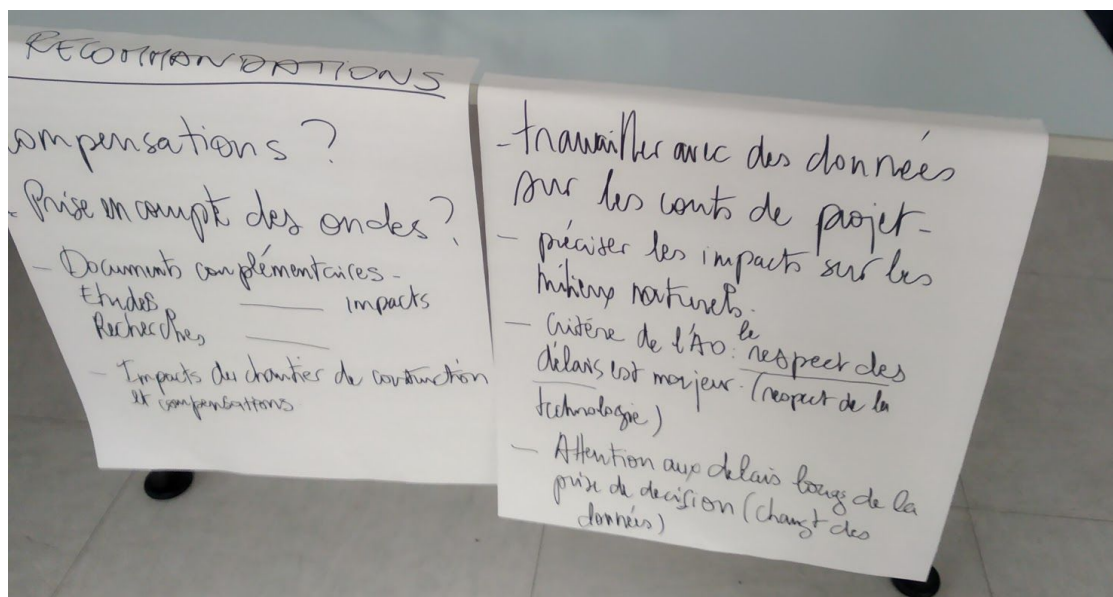 RECOMMANDATIONS
ompensations ?
- Prise en compte des ondes ?
- Documents complémentaires -
Etudes ___ impacts
Recherches ___
- Impacts du chantier de construction
et compensations
- travailler avec des données
sur les couts de projet -
- préciser les impacts sur les
milieux naturels.
- Critère de l'AO : le respect des
délais est majeur. (respect de la
technologie)
- Attention aux délais longs de la
prise de decision (changt des
données)